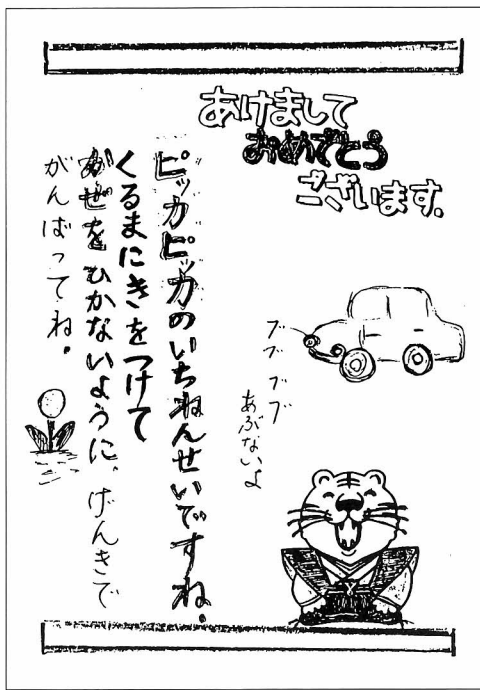 あけまして
おめでとう
ございます.
ピッカピッカのいちねんせいですね.
くるまにきをつけて
かぜをひかないように.げんきで
がんばってね.
ブブブブ
あぶないよ